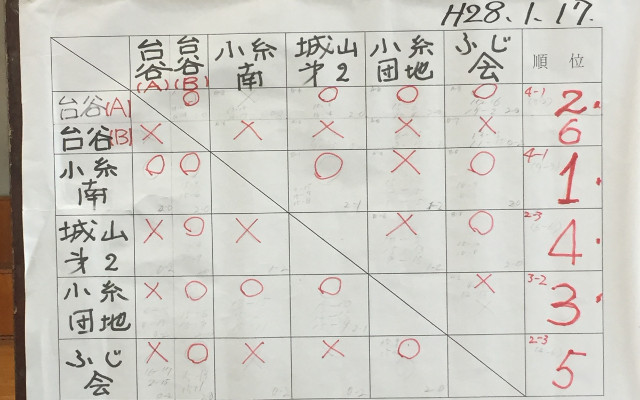 H28.1.17.
台谷(A) 台谷(B) 小糸南 城山才2 小糸団地 ふじ会 順位
台谷(A) ○ × ○ ○ ○ 4-1 2
台谷(B) × × × × × 6
小糸南 ○ ○ ○ × ○ 4-1 1
城山才2 × ○ × × ○ 2-3 4
小糸団地 × ○ ○ ○ × 3-2 3
ふじ会 × ○ × × ○ 2-3 5